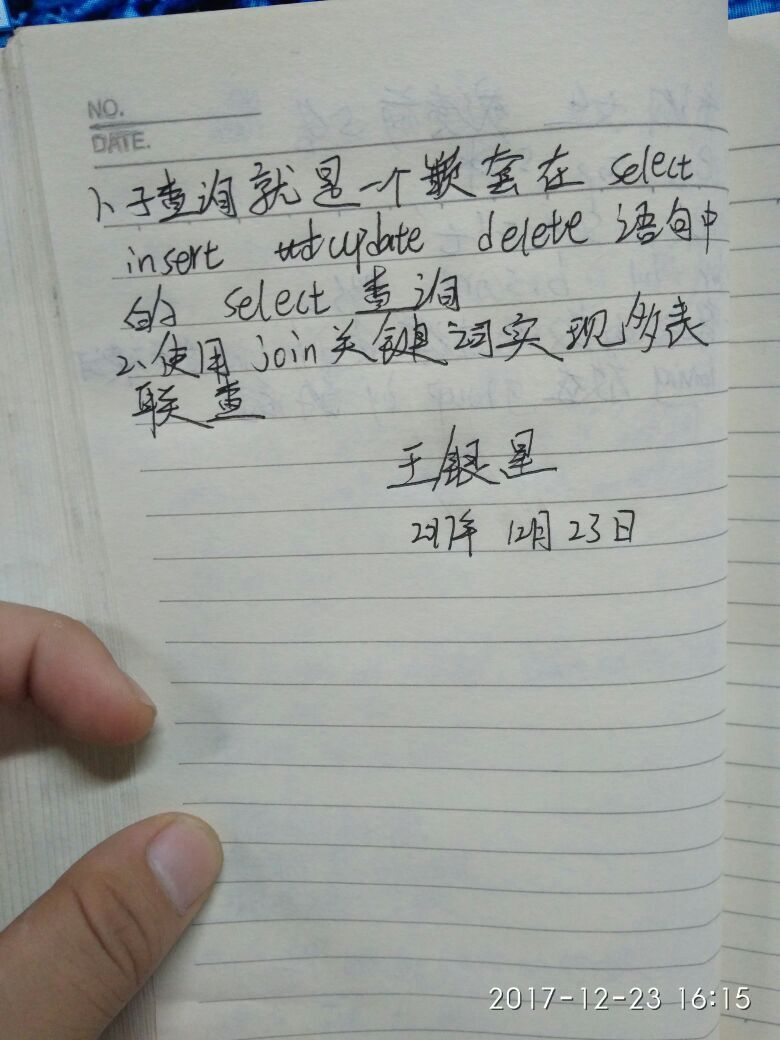 NO.
DATE.
1、子查询就是一个嵌套在 select
insert update delete 语句中
的 select 查询
2、使用 join关键词实现多表
联查
王银星
2017年 12月 23日
2017-12-23 16:15